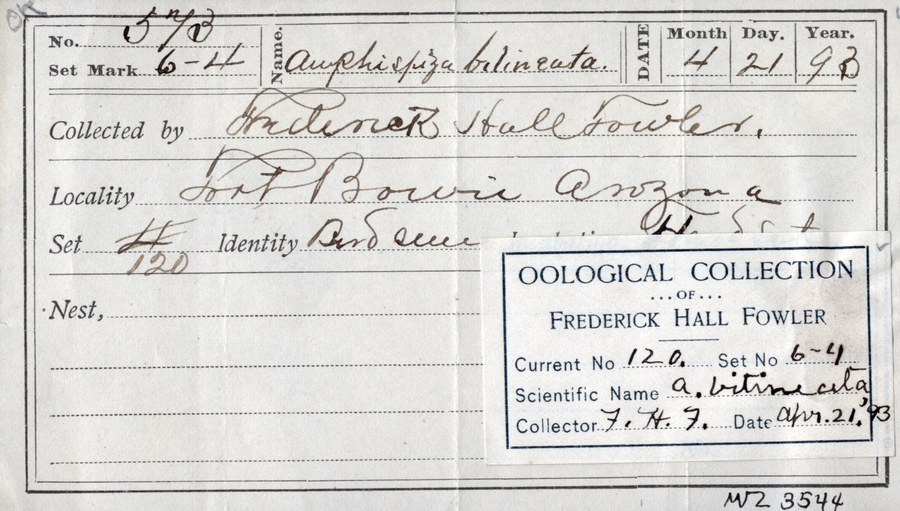 No. 573
Set Mark 6-4
Name. Amphispiza bilineata.
DATE
Month Day. Year.
4 21 93
Collected by Frederick Hall Fowler.
Locality Fort Bowie Arozona
Set 4 Identity Bird seen
120
Nest,
OOLOGICAL COLLECTION
...OF...
FREDERICK HALL FOWLER
Current No 120. Set No 6-4
Scientific Name A. bilineata
Collector F. H. F. Date Apr. 21, '93
MVZ 3544